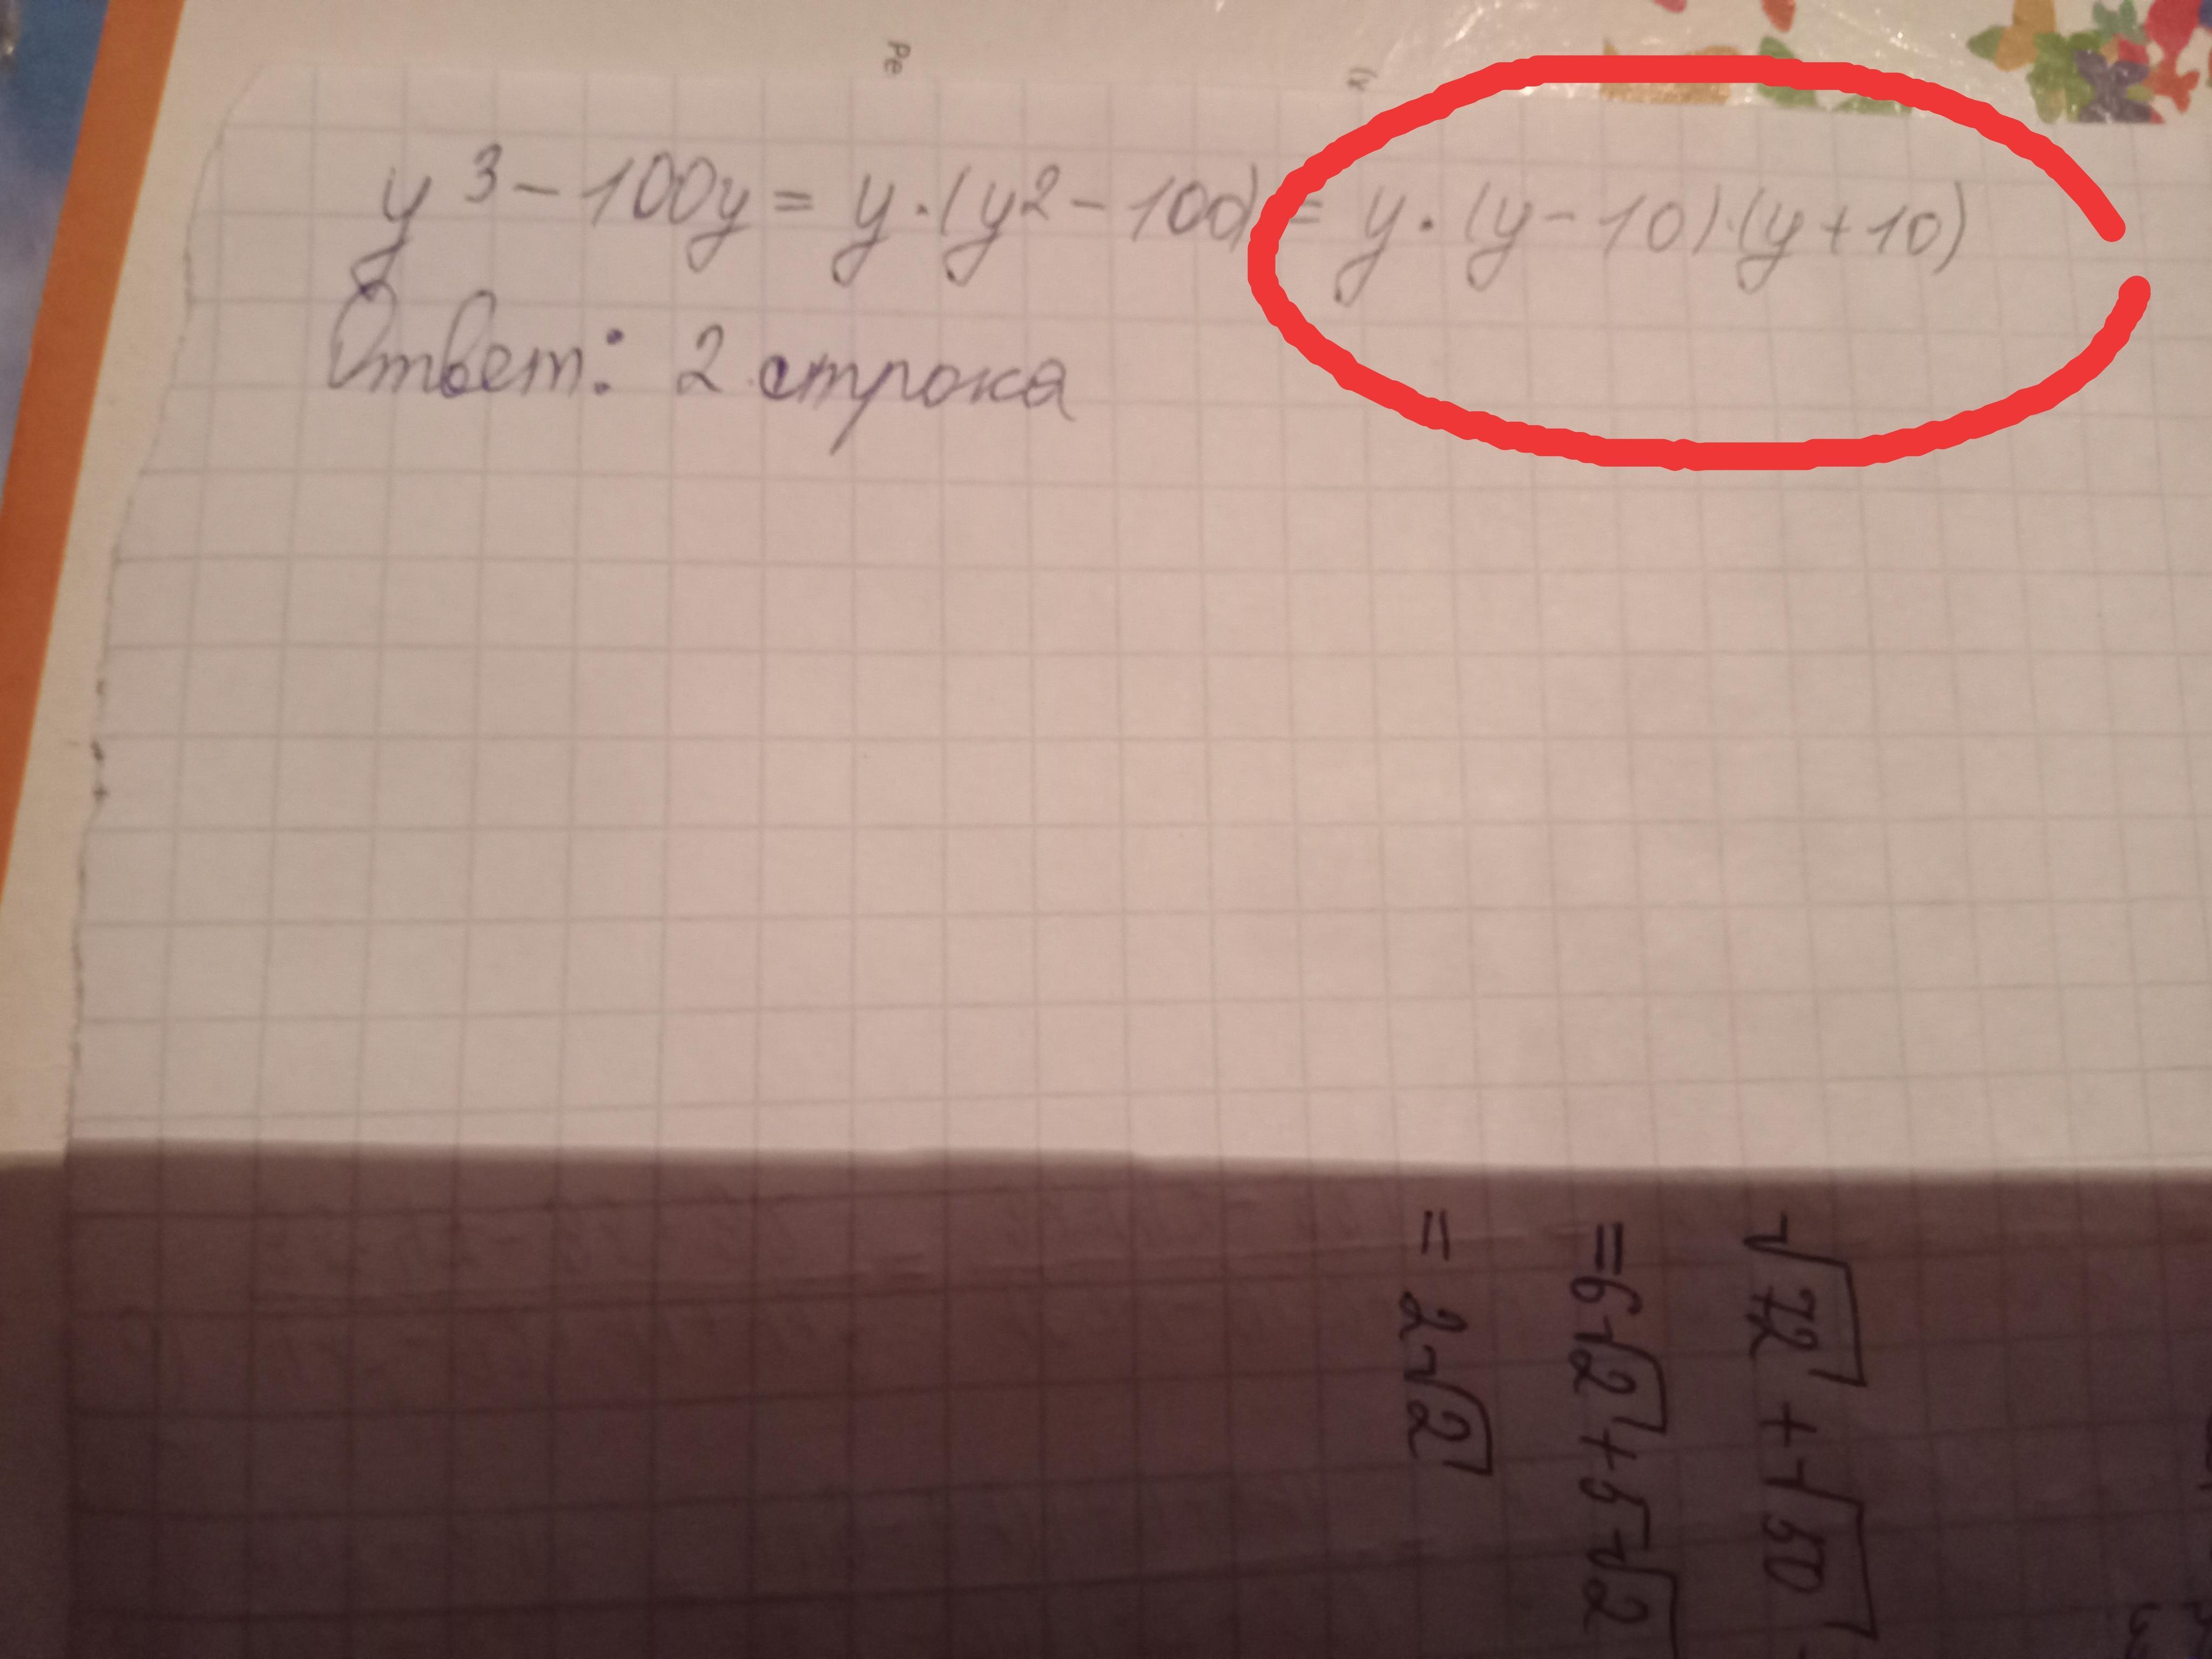 y³ - 100y = y · (y² - 100) = y · (y - 10) · (y + 10)
Ответ: 2 строка
√72 + √50
= 6√2 + 5√2
= 2√2